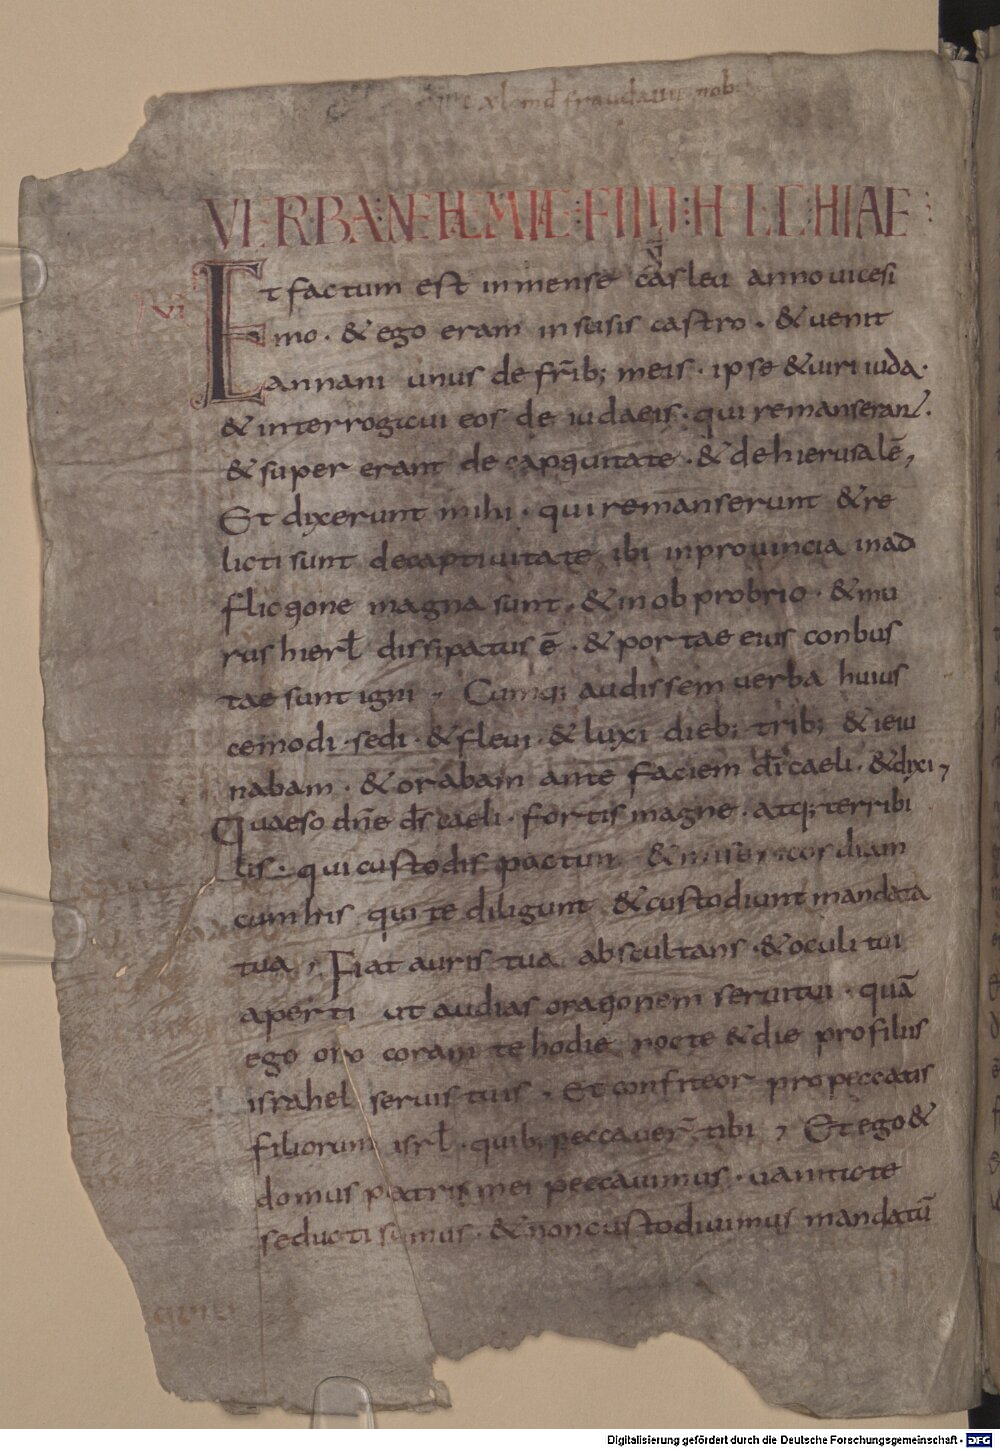 fraudauit nob
VERBA:NEHEMIAE:FILII:HELCHIAE:
VI
Et factum est inmense casleu anno uicesi
mo · & ego eram insusis castro · & uenit
annani unus de fr̄ib; meis · ipse & uiri iuda ·
& interrogaui eos de iudaeis · qui remanserant ·
& super erant de captiuitate · & dehierusalē,
Et dixerunt mihi · qui remanserunt & re
licti sunt decaptiuitate ibi inprouincia inad
flictione magna sunt, & in obprobrio · & mu
rus hierł dissipatus ē · & portae eius conbus
tae sunt igni , Cumq; audissem uerba huius
cemodi · sedi · & fleui · & luxi dieb; trib; & ieiu
nabam · & orabam ante faciem dī caeli · & dixi ,
Quaeso dn̄e ds̄ caeli · fortis magne · atq; terribi
lis · qui custodis pactum & misericordiam
cum his qui te diligunt & custodiunt mandata
tua , Fiat auris tua abscultans · & oculi tui
aperti ut audias orationem serui tui · quā
ego oro coram te hodie nocte & die pro filiis
israhel seruis tuis , Et confiteor pro peccatis
filiorum isrł · quib; peccauer̄ tibi , Et ego &
domus patris mei peccauimus · uanitate
seducti sumus · & non custodiuimus mandatū
Digitalisierung gefördert durch die Deutsche Forschungsgemeinschaft - DFG